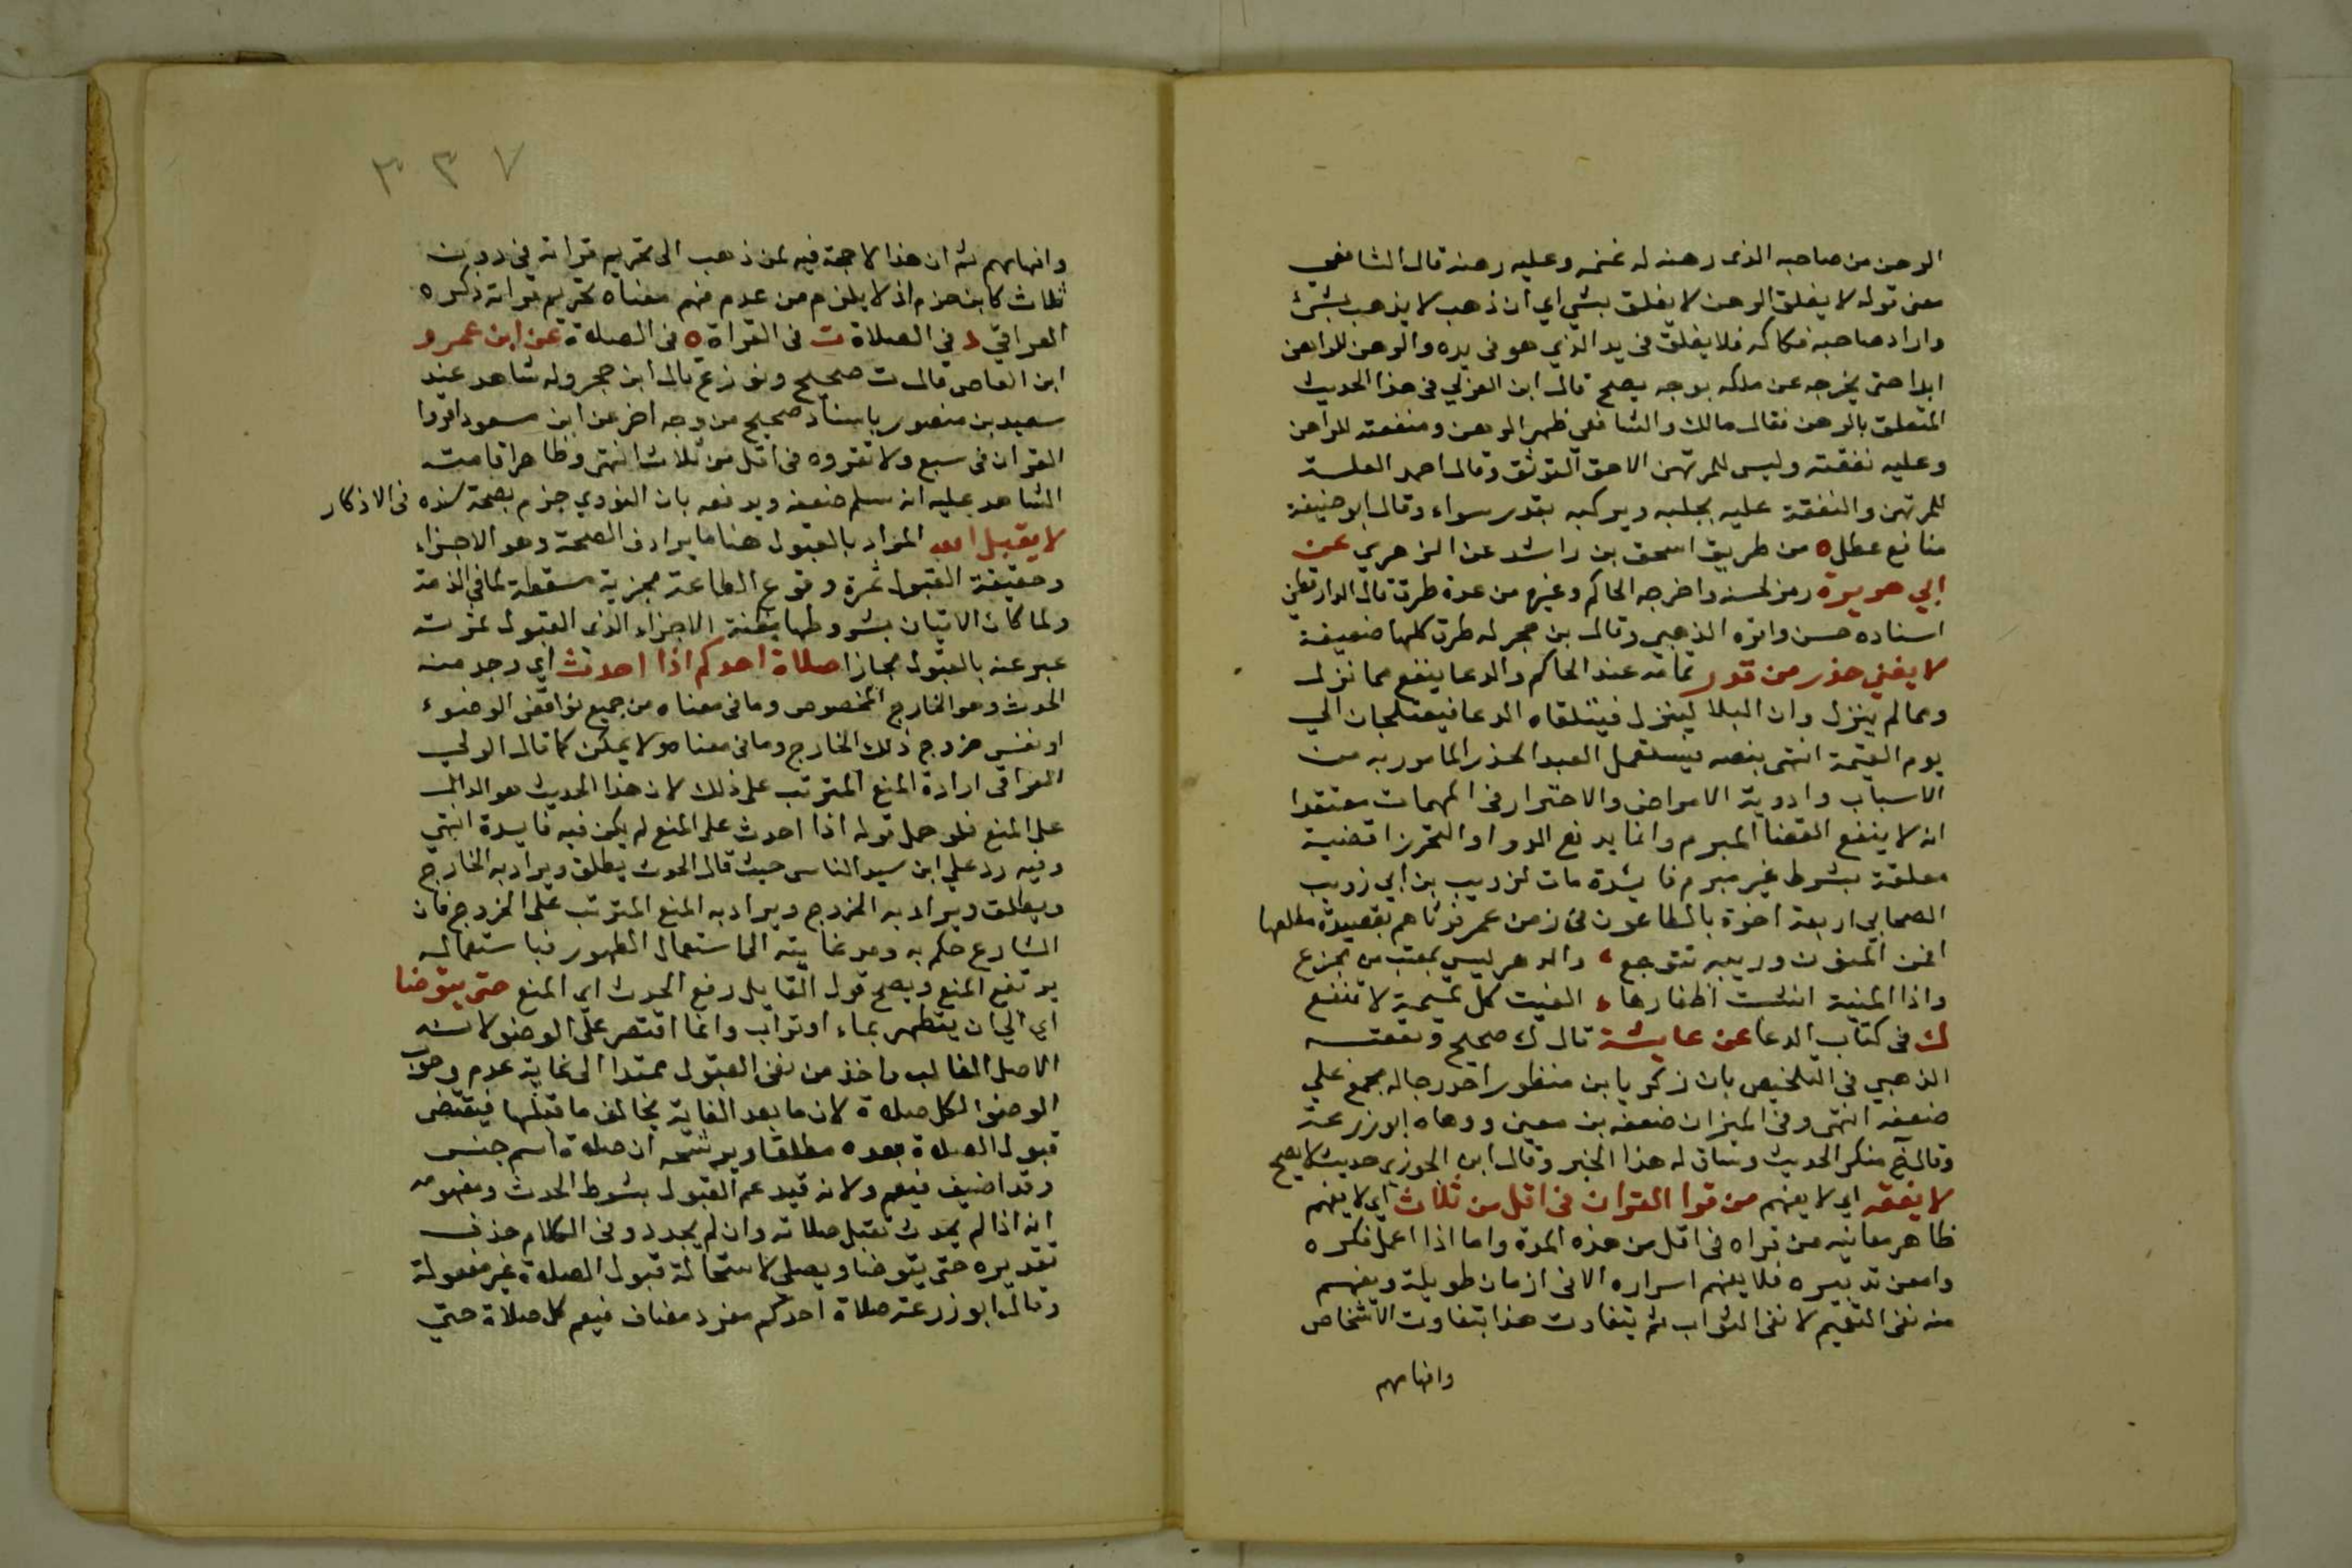 الرهن من صاحبه الذى رهنه له غنمه وعليه رهنه قال الشافعي
معنى قوله لا يغلق الرهن لا يغلق بشي اي ان ذهب لا يذهب بشئ
واراد صاحبه فكاكه فلا يغلق في يد الذي هو في يده والرهن للراهن
ابدا حتى يخرجه عن ملكه بوجه يصح قال ابن العربي في هذا الحديث
المتعلق بالرهن فقال مالك والشافعي ظهر الرهن ومنفعته للراهن
وعليه نفقته وليس للمرتهن الا حق التوثق وقال احمد الغلة
للمرتهن والنفقة عليه يحلبه ويركبه بقدر سواء وقال ابو حنيفة
منافع عطل ه من طريق اسحق بن راشد عن الزهري عن
ابي هريرة رمز لحسنه واخرجه الحاكم وغيره من عدة طرق قال الدارقطني
اسناده حسن واقره الذهبي وقال بن حجر له طرق كلها ضعيفة
لا يغني حذر من قدر تمامه عند الحاكم والدعا ينفع مما نزل
ومما لم ينزل وان البلا لينزل فيتلقاه الدعا فيعتلجان الي
يوم القيمة انتهى بنصه فيستعمل العبد الحذر المامور به من
الاسباب وادوية الامراض والاحتراز في المهمات معتقدا
انه لا ينفع القضا المبرم وانما يدفع الدوا والتحرز اقضية
معلقة بشرط غير مبرم فايدة مات لذويب بن ابي ذويب
الصحابي اربعة اخوة بالطاعون في زمن عمر فرثاهم بقصيدة مطلعها
امن المنون وريبه تتوجع ، والدهر ليس بمعتب من يجزع
واذا المنية انشبت اظفارها ، الفيت كل تميمة لا تنفع
ك في كتاب الدعا عن عايشة قال ك صحيح وتعقبه
الذهبي في التلخيص بان زكريا بن منظور احد رجاله مجمع علي
ضعفه انتهى وفى الميزان ضعفه بن معين ووهاه ابو زرعة
وقال خ منكر الحديث وساق له هذا الخبر وقال ابن الجوزي حديث لا يصح
لا يفقه اي لا يفهم من قرا القران في اقل من ثلاث اي لا يفهم
ظاهر معانيه من قراه في اقل من هذه المدة واما اذا اعمل فكره
وامعن تدبيره فلا يفهم اسراره الا في ازمان طويلة ويفهم
منه نفى التفهم لا نفى الثواب ثم يتفاوت هذا بتفاوت الاشخاص
وافهامهم
٣٣٧
وافهامهم ثم ان هذا لا حجة فيه لمن ذهب الى تحريم قراته في دون
ثلاث كابن حزم اذ لا يلزم من عدم فهم معناه تحريم قراته ذكره
العراقي د في الصلاة ت في القراة ه في الصلاة عن ابن عمرو
ابن العاص قال ت صحيح ونوزع قال ابن حجر وله شاهد عند
سعيد بن منصور باسناد صحيح من وجه اخر عن ابن مسعود اقروا
القران في سبع ولا تقروه في اقل من ثلاث انتهى وظاهر اقامته
الشاهد عليه انه سلم ضعفه ويدفعه بان النووي جزم بصحة سنده في الاذكار
لا يقبل الله المراد بالقبول هنا ما يرادف الصحة وهو الاجزاء
وحقيقة القبول ثمرة وقوع الطاعة مجزية مسقطة لما في الذمة
ولما كان الاتيان بشروطها مظنة الاجزاء الذى القبول ثمرته
عبر عنه بالقبول مجازا صلاة احدكم اذا احدث اي وجد منه
الحدث وهو الخارج المخصوص وما في معناه من جميع نواقض الوضوء
او نفس خروج ذلك الخارج وما في معناه ولا يمكن كما قال الولي
العراقي ارادة المنع المترتب على ذلك لان هذا الحديث هو الدال
على المنع فلو حمل قوله اذا احدث على المنع لم يكن فيه فايدة انتهى
وفيه رد علي ابن سيد الناس حيث قال الحدث يطلق ويراد به الخارج
ويطلق ويراد به الخروج ويراد به المنع المترتب على الخروج فان
الشارع حكم به ومد غايته الى استعمال الطهور فباستعماله
يرتفع المنع ويصح قول القايل رفع الحدث اي المنع حتى يتوضا
اي الي ان يتطهر بماء او تراب وانما اقتصر على الوضو لانه
الاصل الغالب واخذ من نفى القبول ممتدا الى غاية عدم وجوب
الوضوء لكل صلاة لان ما بعد الغاية يخالف ما قبلها فيقتضى
قبول الصلاة بعده مطلقا ويرشحه ان صلاة اسم جنس
وقد اضيف فيعم ولانه قيد عدم القبول بشرط الحدث ومفهومه
انه اذا لم يحدث تقبل صلاته وان لم يجدد وفي الكلام حذف
تقديره حتى يتوضا ويصلى لاستحالة قبول الصلاة غير مفعولة
وقال ابو زرعة صلاة احدكم مفرد مضاف فيعم كل صلاة حتي